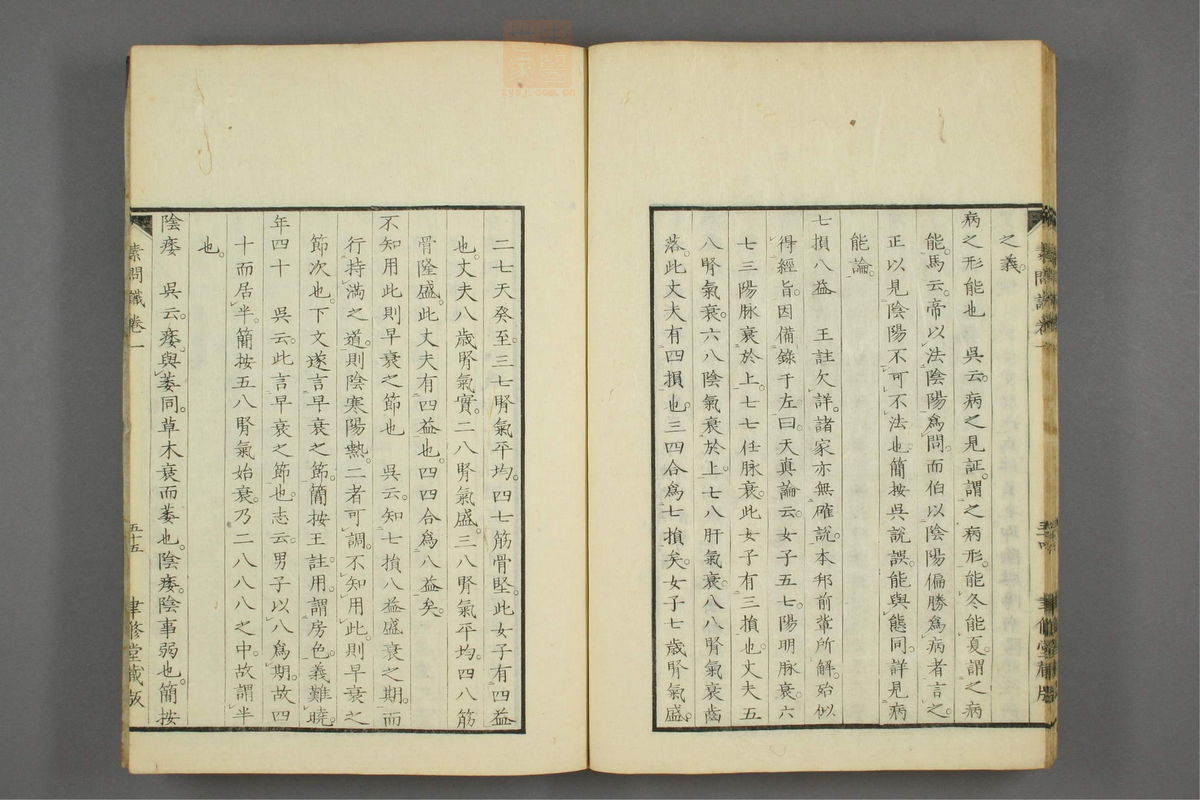 之義。
病之形能也　吳云。病之見証。謂之病形。能冬能夏。謂之病
能。馬云。帝以法陰陽爲問。而伯以陰陽偏勝爲病者言之。
正以見陰陽不可不法也。簡按吳說誤。能與態同。詳見病
能論。
七損八益　王註欠詳。諸家亦無確說。本邦前輩所解。殆似
得經旨。因備錄于左。曰。天真論云。女子五七。陽明脉衰。六
七三陽脉衰於上。七七任脉衰。此女子有三損也。丈夫五
八腎氣衰。六八陰氣衰於上。七八肝氣衰。八八腎氣衰齒
落。此丈夫有四損也。三四合爲七損矣。女子七歲腎氣盛。
二七天癸至。三七腎氣平均。四七筋骨堅。此女子有四益
也。丈夫八歲腎氣實。二八腎氣盛。三八腎氣平均。四八筋
骨隆盛。此丈夫有四益也。四四合爲八益矣。
不知用此則早衰之節也　吳云。知七損八益盛衰之期。而
行持滿之道。則陰寒陽熱。二者可調。不知用此。則早衰之
節次也。下文遂言早衰之節。簡按王註。用。謂房色。義難曉。
年四十　吳云。此言早衰之節也。志云。男子以八爲期。故四
十而居半。簡按五八腎氣始衰。乃二八八八之中。故謂半
也。
陰痿　吳云。痿。與萎同。草木衰而萎也。陰痿。陰事弱也。簡按
素問識卷一
五十五
聿修堂藏版